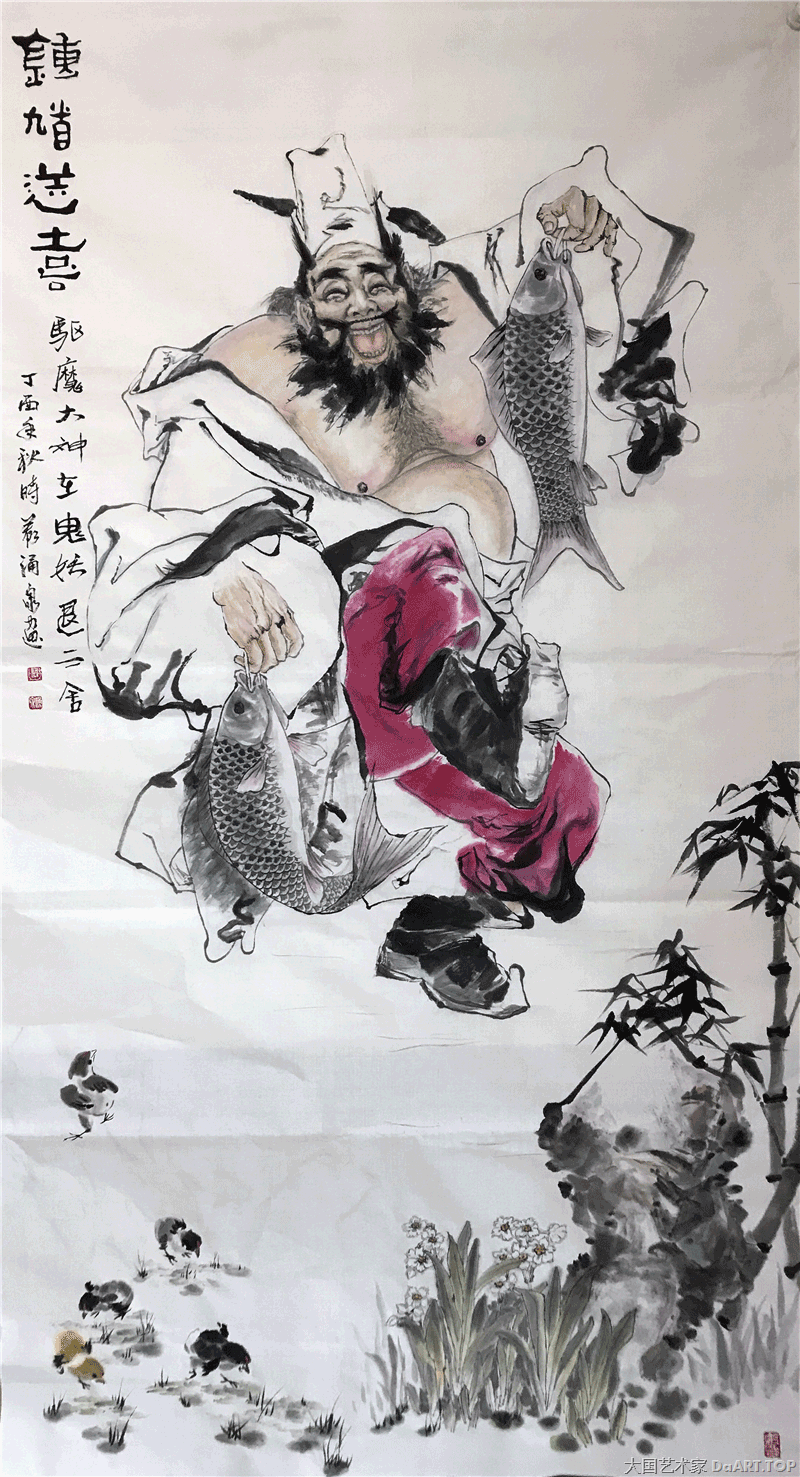 鍾馗送喜
驱魔大神在鬼妖退二舍
丁酉年秋時 涌泉画
大国艺术家 DaART.TOP